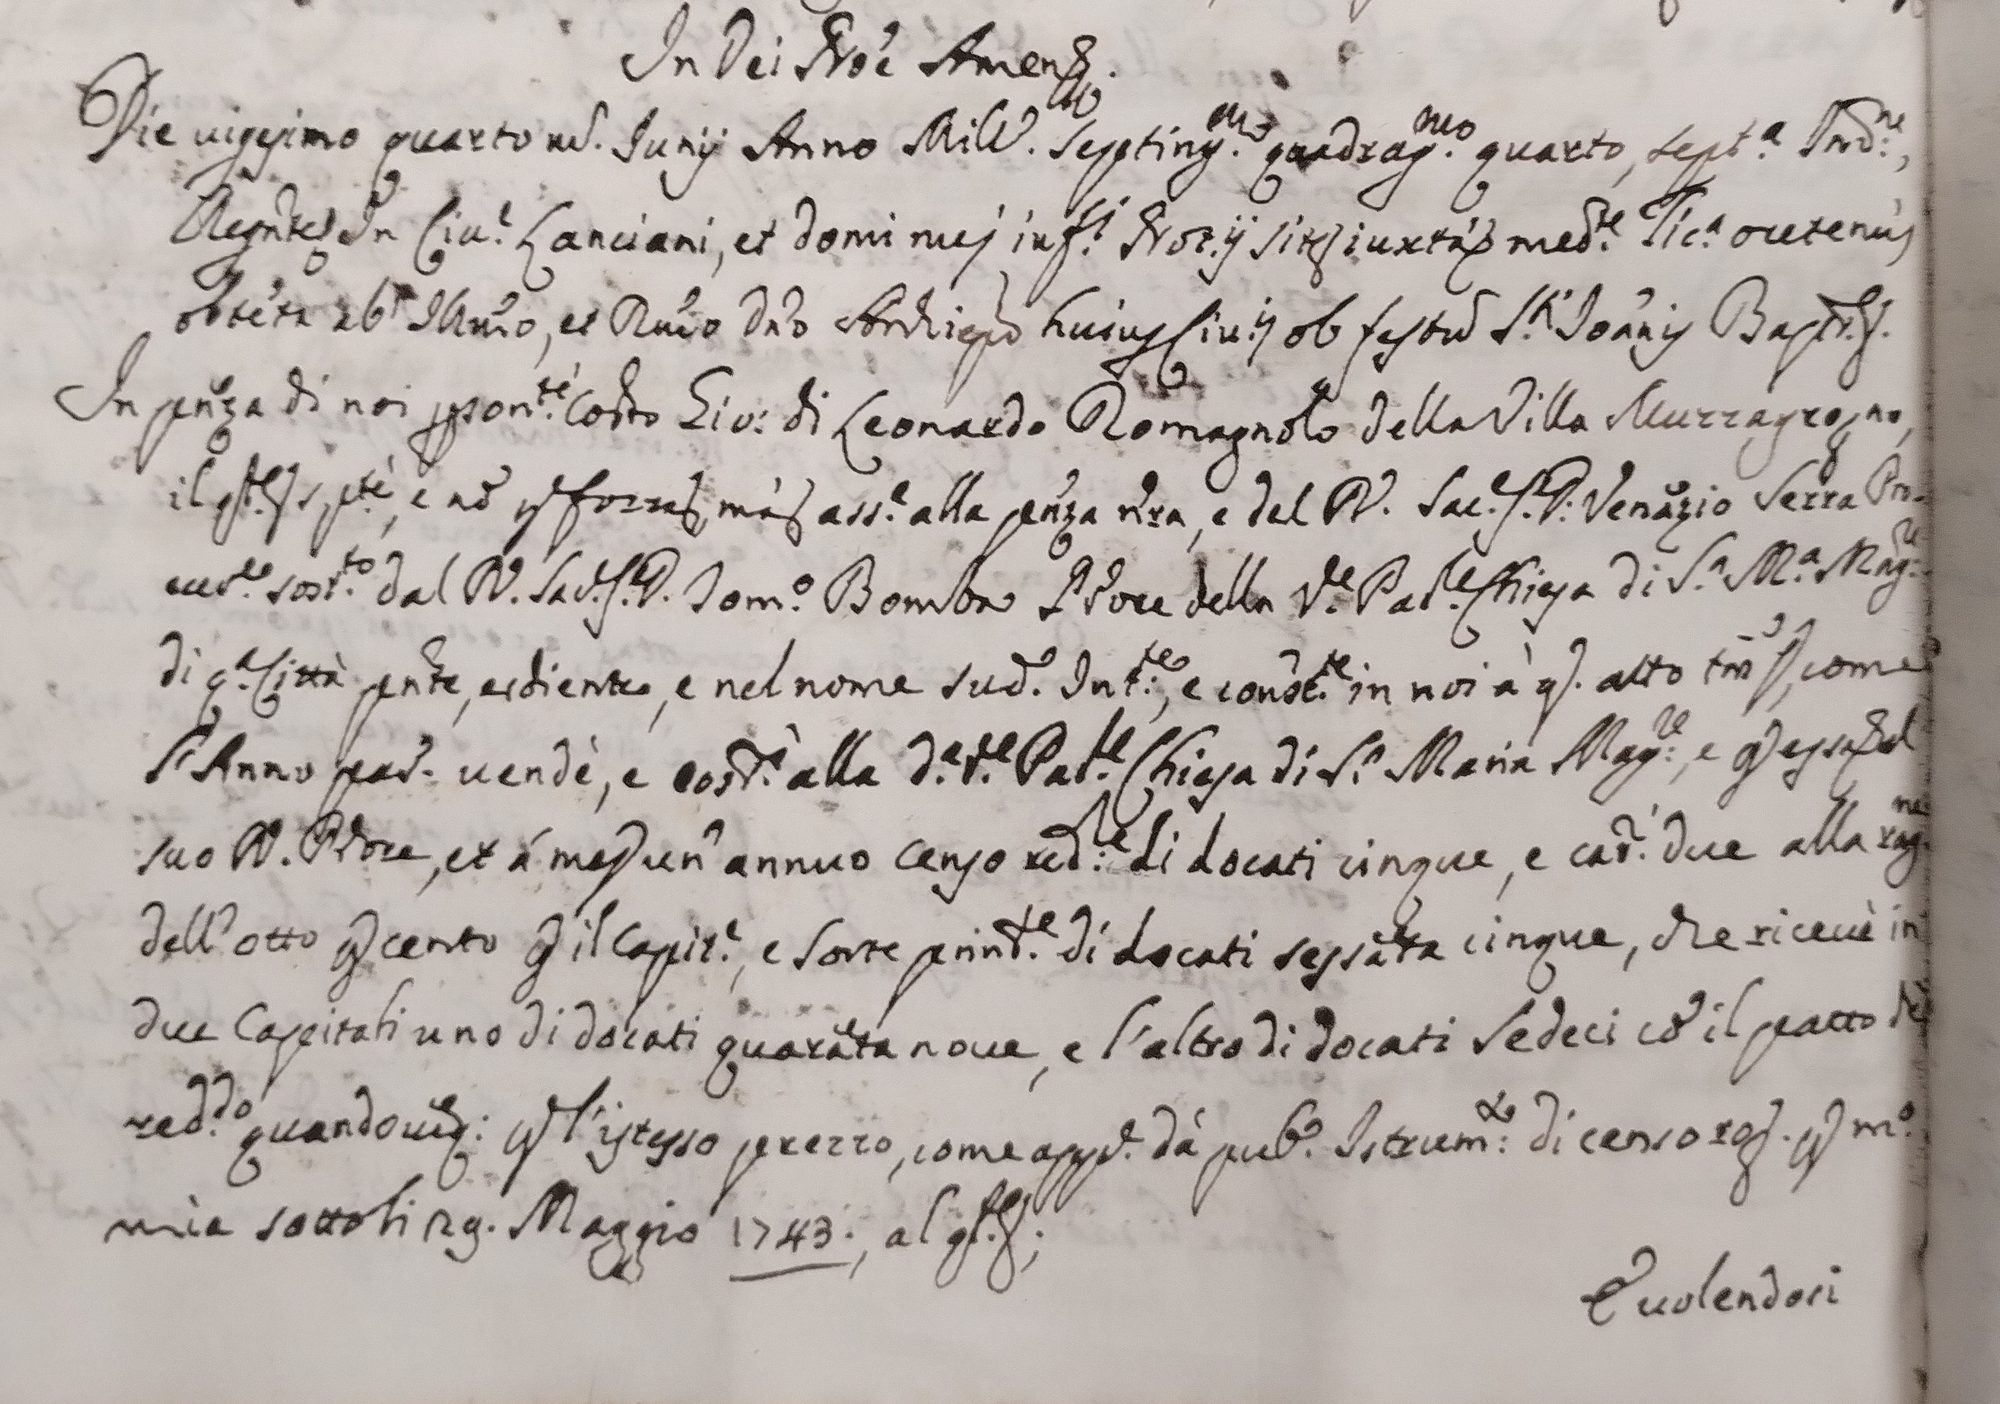 In Dei Noe Amen.
Die uigesimo quarto m. Junij Anno Mill. septing.mo quadrag.mo quarto, sept.a Ind.ne,
Regntes In Ciu.e Lanciani, et domi mej inf.i Not.ij sitis iuxta med.te Lic.a oretenus
obteta ab Illmo, et Rmo Dno Archiepo huius Ciu.is ob festu S.ti Joanis Bapt.
In pnza di noi psonte Costo Liv: di Leonardo Romagnolo della Villa Muzzagrogno,
il qle spte, e no p forza, ma ass.e alla pnza nra, e del R. Sac. S. D: Venazio Serra Pro-
cur.e sost.to dal R. Sac. S. D. Dom.o Bomba Rdore della V.e Pad.le Chiesa di S.a M.a Mag.re
di q.a Città pnte, e nel nome sud.o Int.e, e const.te in noi à q. atto come
l'Anno pad. uendè, e cost. alla d.a V.e Pad.le Chiesa di S.a Maria Mag.re, e p essa al
suo R. Rdore, et à me un' annuo censo red.le di docati cinque, e car. due alla rag.ne
dell'otto p cento p il Capit.e, e Sorte prin.le di docati sessata cinque, che riceuè in
due Capitali uno di docati quarata noue, e l'altro di docati Sedeci co il patto de
red.do quandocuq: p l'istesso prezzo, come app. dà pub.o Istrum.to di censo rog. p m.o
mia sotto li 29. Maggio 1743., al qle;
E uolendosi